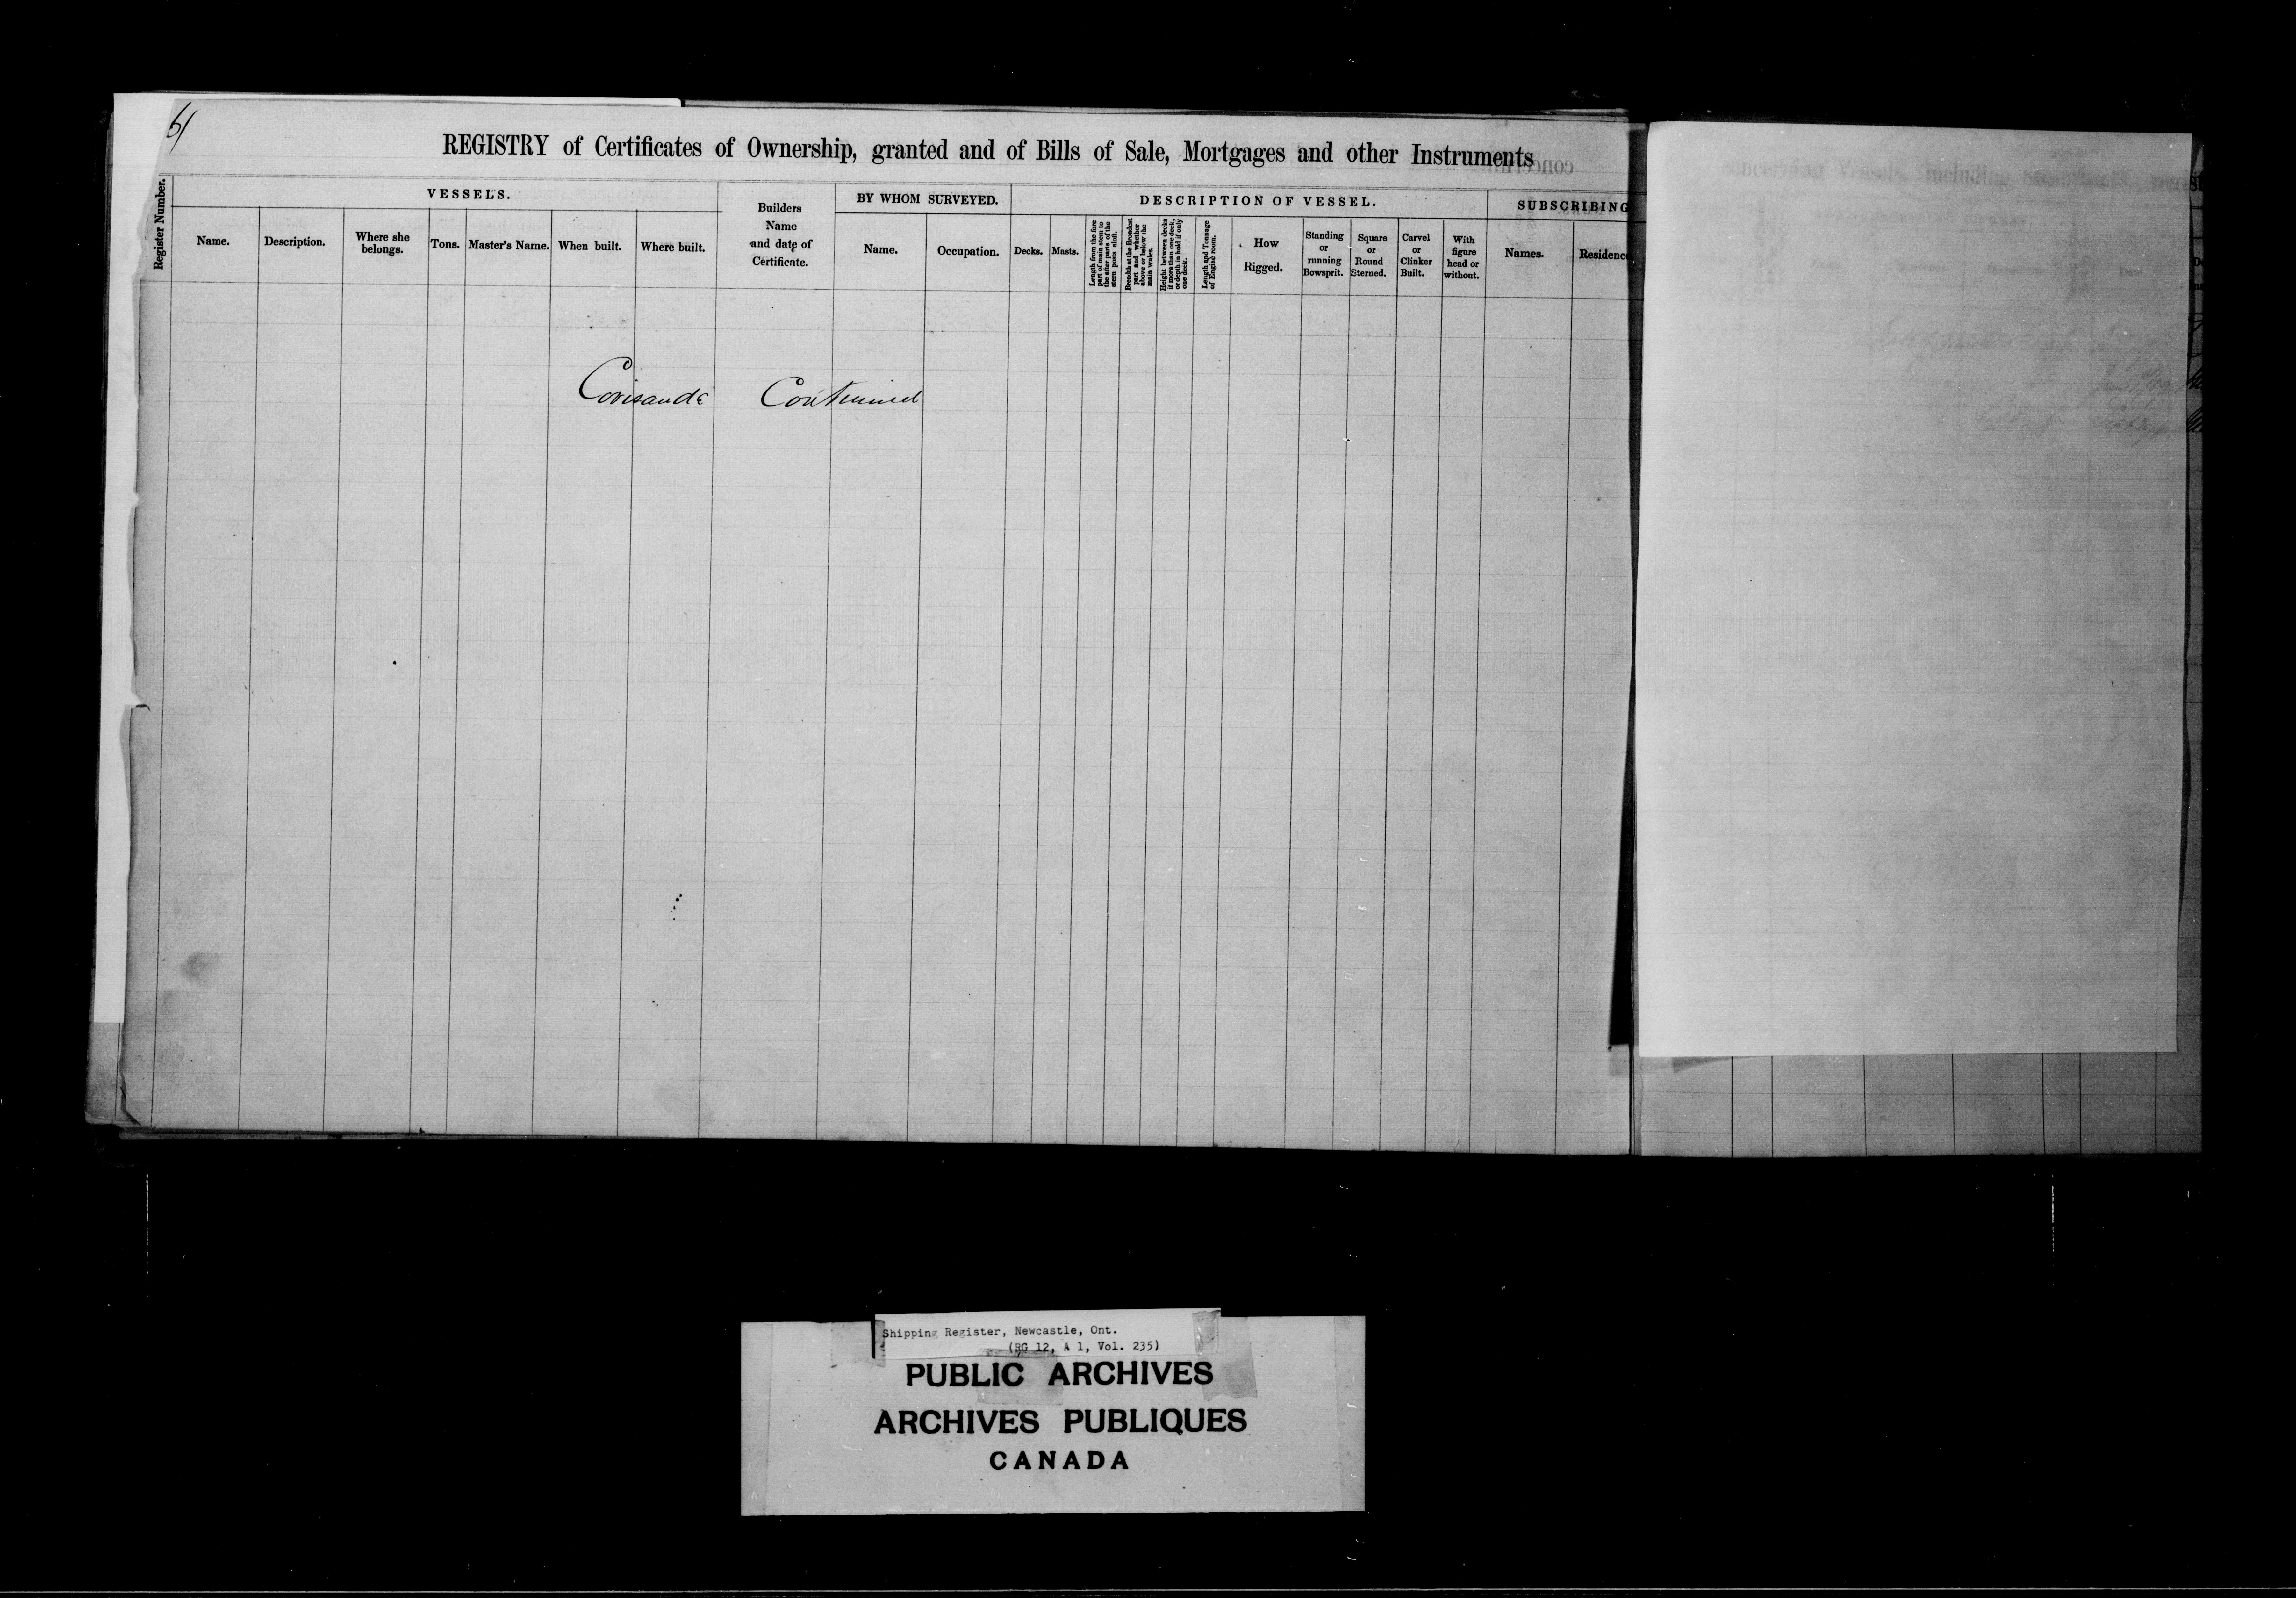 51
REGISTRY of Certificates of Ownership, granted and of Bills of Sale, Mortgages and other Instruments
Register Number.
VESSELS.
Name.
Description.
Where she belongs.
Tons.
Master's Name.
When built.
Where built.
Builders Name and date of Certificate.
BY WHOM SURVEYED.
Name.
Occupation.
DESCRIPTION OF VESSEL.
Decks.
Masts.
Length from the fore part of main stem to the after parts of the stern posts aloft.
Breadth at the Broadest part and whether above or below the main wales.
Height between decks if more than one deck, or depth in hold if only one deck.
Length and Tonnage of Engine room.
How Rigged.
Standing or running Bowsprit.
Square or Round Sterned.
Carvel or Clinker Built.
With figure head or without.
SUBSCRIBING
Names.
Residenc
Corisande Continued
Shipping Register, Newcastle, Ont.
(RG 12, A 1, Vol. 235)
PUBLIC ARCHIVES
ARCHIVES PUBLIQUES
CANADA